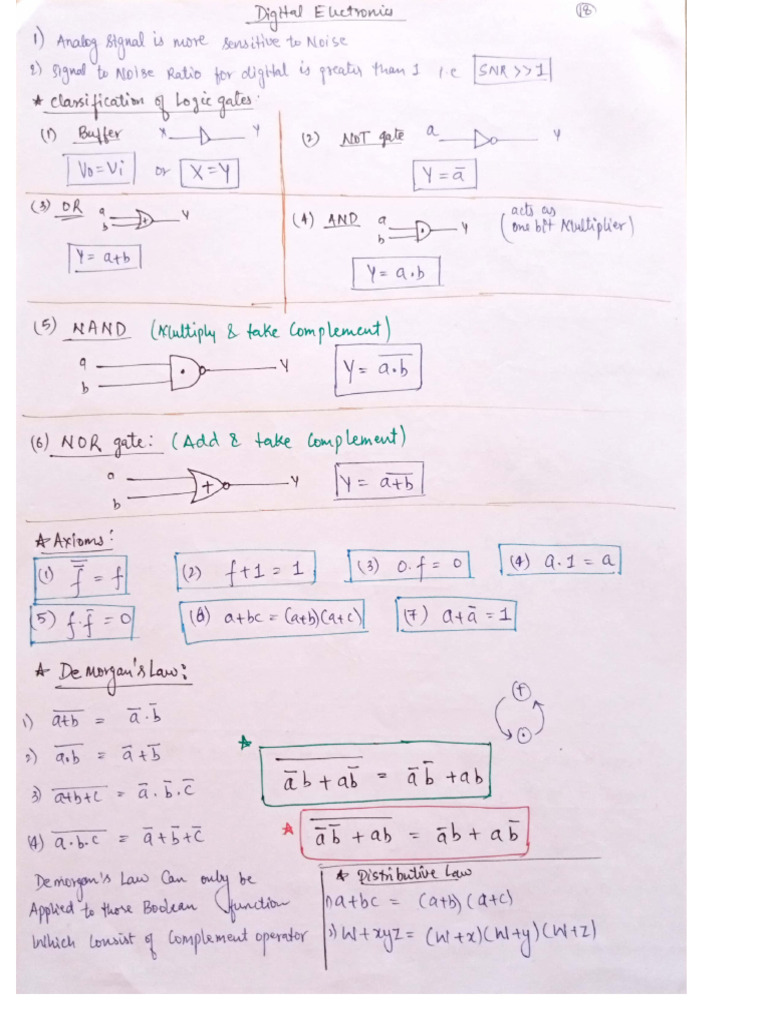 Digital Electronics
18
1) Analog signal is more sensitive to Noise
2) Signal to Noise Ratio for digital is greater than 1 i.e SNR >> 1
★ Classification of Logic gates:
(1) Buffer X Y
Vo = Vi or X = Y
(2) NOT gate a Y
Y = a̅
(3) OR a b + Y
Y = a+b
(4) AND a b . Y (acts as
one bit Multiplier)
Y = a.b
(5) NAND (Multiply & take Complement)
a b . Y
Y = \overline{a.b}
(6) NOR gate: (Add & take Complement)
a b + Y
Y = \overline{a+b}
★ Axioms:
(1) \overline{\overline{f}} = f
(2) f+1 = 1
(3) 0.f = 0
(4) a.1 = a
(5) f.f̅ = 0
(6) a+bc = (a+b)(a+c)
(7) a+a̅ = 1
★ De Morgan's Law:
1) \overline{a+b} = a̅.b̅
2) \overline{a.b} = a̅+b̅
3) \overline{a+b+c} = a̅.b̅.c̅
(4) \overline{a.b.c} = a̅+b̅+c̅
+
.
★ \overline{a̅b + ab̅} = a̅b̅ + ab
★ \overline{a̅b̅ + ab} = a̅b + ab̅
Demorgan's Law Can only be
Applied to those Boolean function
Which Consist of Complement operator
★ Distributive Law
1) a+bc = (a+b)(a+c)
2) W+xyz = (W+x)(W+y)(W+z)